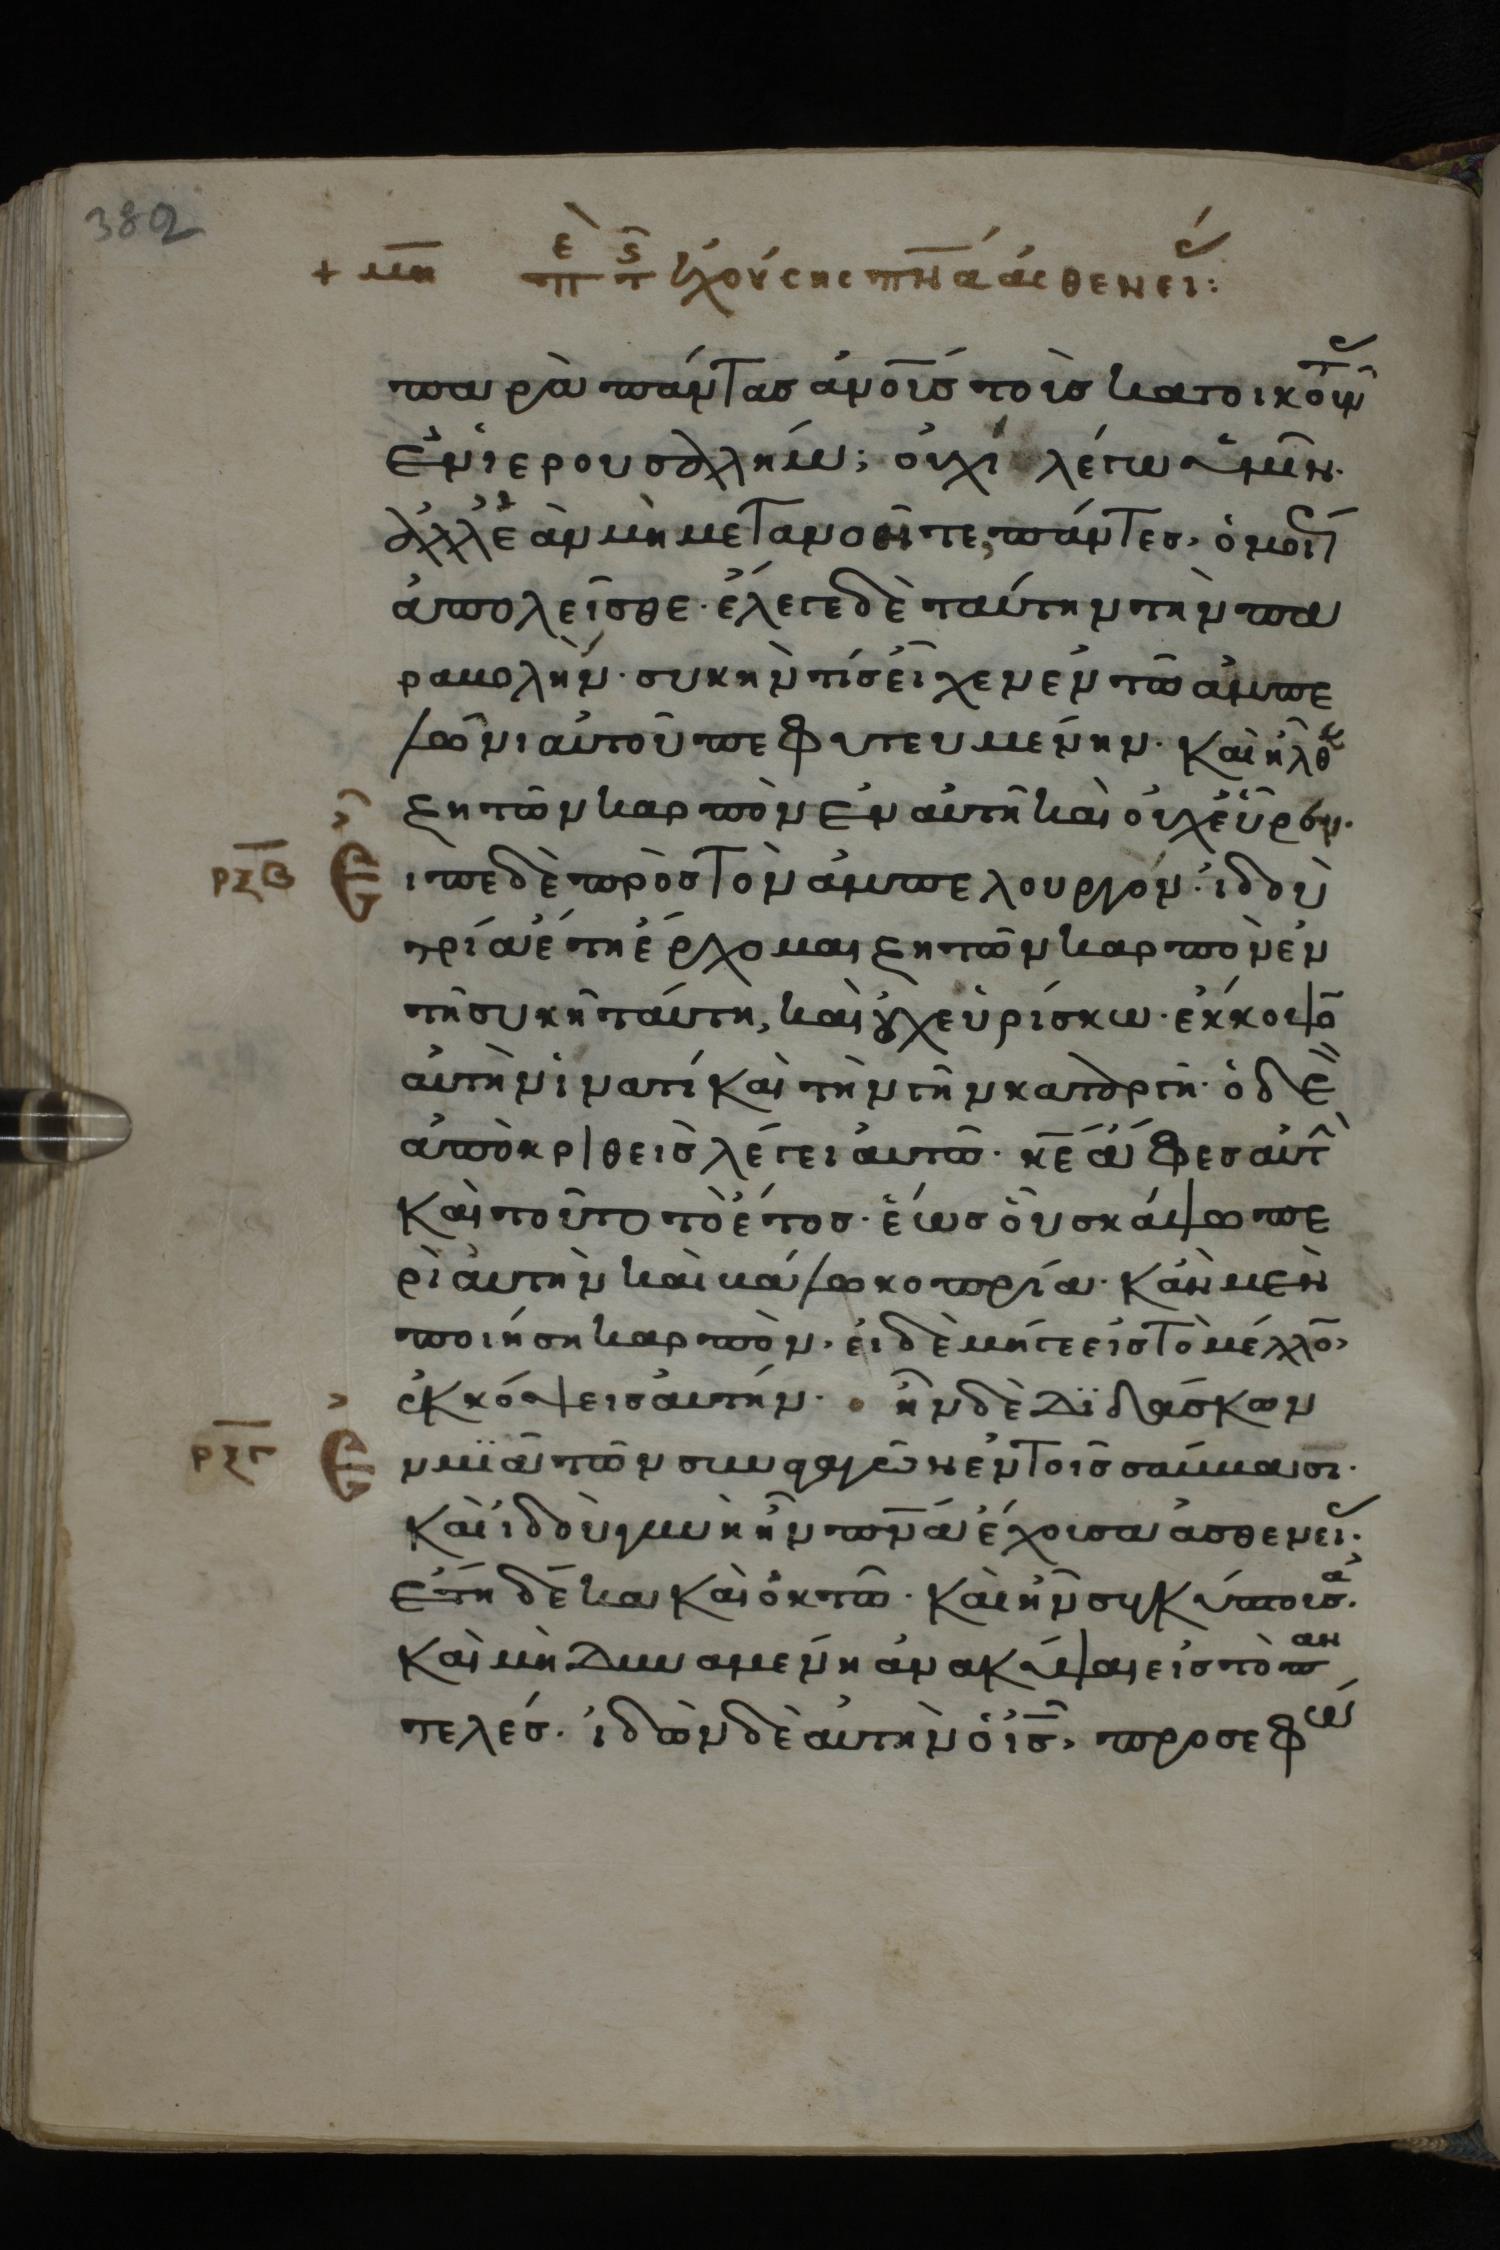 382
+ μη περὶ τῆς ἐχούσης πνα ἀσθενεί(ας):
παρὰ πάντας ἀνοις τοὺς κατοικοῦντ
ἐν ἱερουσαλλήμ; οὐχί λέγω ὑμῖν.
ἀλλ' ἐὰν μὴ μετανοεῖτε, πάντες, ὁμοί
ἀπολεῖσθε. ἔλεγε δὲ ταύτην τὴν πα
ραβολήν. συκὴν τίς εἶχεν ἐν τῶ ἀμπε
λῶνι αὐτοῦ πεφυτευμένην. καὶ ἦλθε
ζητῶν καρπὸν ἐν αὐτῆ καὶ οὐχ εὗρεν.
ρξβ Ε ἶπε δὲ πρὸς τὸν ἀμπελουργόν. ἰδοὺ
τρία ἔτη ἔρχομαι ζητῶν καρπὸν ἐν
τῆ συκῆ ταύτη, καὶ οὐχ εὑρίσκω. ἔκκοψο
αὐτὴν ἱνατί καὶ τὴν γῆν καταργῆ. ὁ δὲ
ἀποκριθεὶς λέγει αὐτῶ. κε ἄφες αὐτ
καὶ τοῦτο τὸ ἔτος. ἕως ὅου σκάψω πε
ρὶ αὐτὴν καὶ βάλω κοπρία. κἂν μὲν
ποιήση καρπὸν. εἰ δὲ μήγε εἰς τὸ μέλλο
ἐκκόψεις αὐτήν. ἦν δὲ διδάσκων
ρξγ Ε ν μιᾶ τῶν συναγωγῶν ἐν τοῖς σάββασι.
καὶ ἰδοὺ γυνὴ ἦν πνα ἔχουσα ἀσθενεί.
ἔτη δέκα καὶ ὀκτῶ. καὶ ἦν συγκύπτουσα.
καὶ μὴ δυναμένη ἀνακύψαι εἰς τὸ παν
τελές. ἰδὼν δὲ αὐτὴν ὁ ις, προσεφώ